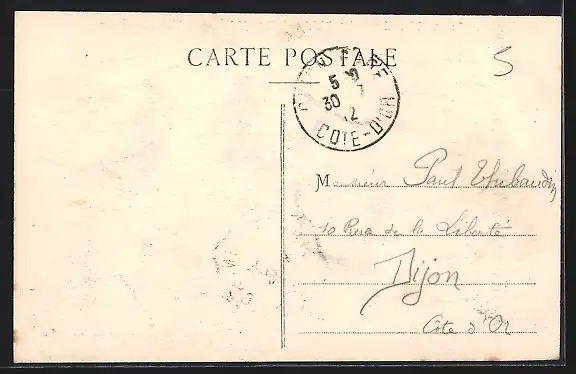 CARTE POSTALE
5
5
30
12
COTE-D'OR
Monsieur Paul Thibaudin
10 Rue de la Liberté
Dijon
Côte d'Or